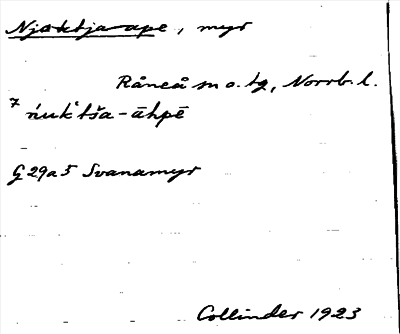 Njaktja-ape, myr
Råneå sn o. tg, Norrb. l.
7 ńuk'tša-āhpē
G 29a5 Svanamyr
Collinder 1923